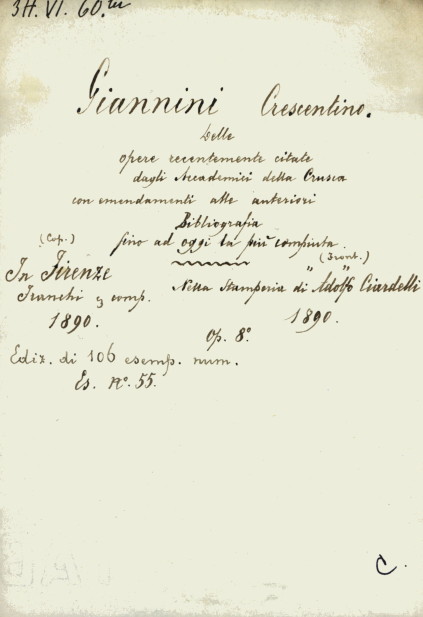 3H. VI. 60.ter
Giannini Crescentino.
Delle
opere recentemente citate
dagli Accademici della Crusca
con emendamenti alle anteriori
Bibliografia
fino ad oggi la più compiuta.
(Cop.)
In Firenze
Franchi e comp.
1890.
(Front.)
Nella Stamperia di "Adolfo" Ciardelli
1890.
Op. 8º
Ediz. di 106 esemp. num.
Es. nº. 55.
C.